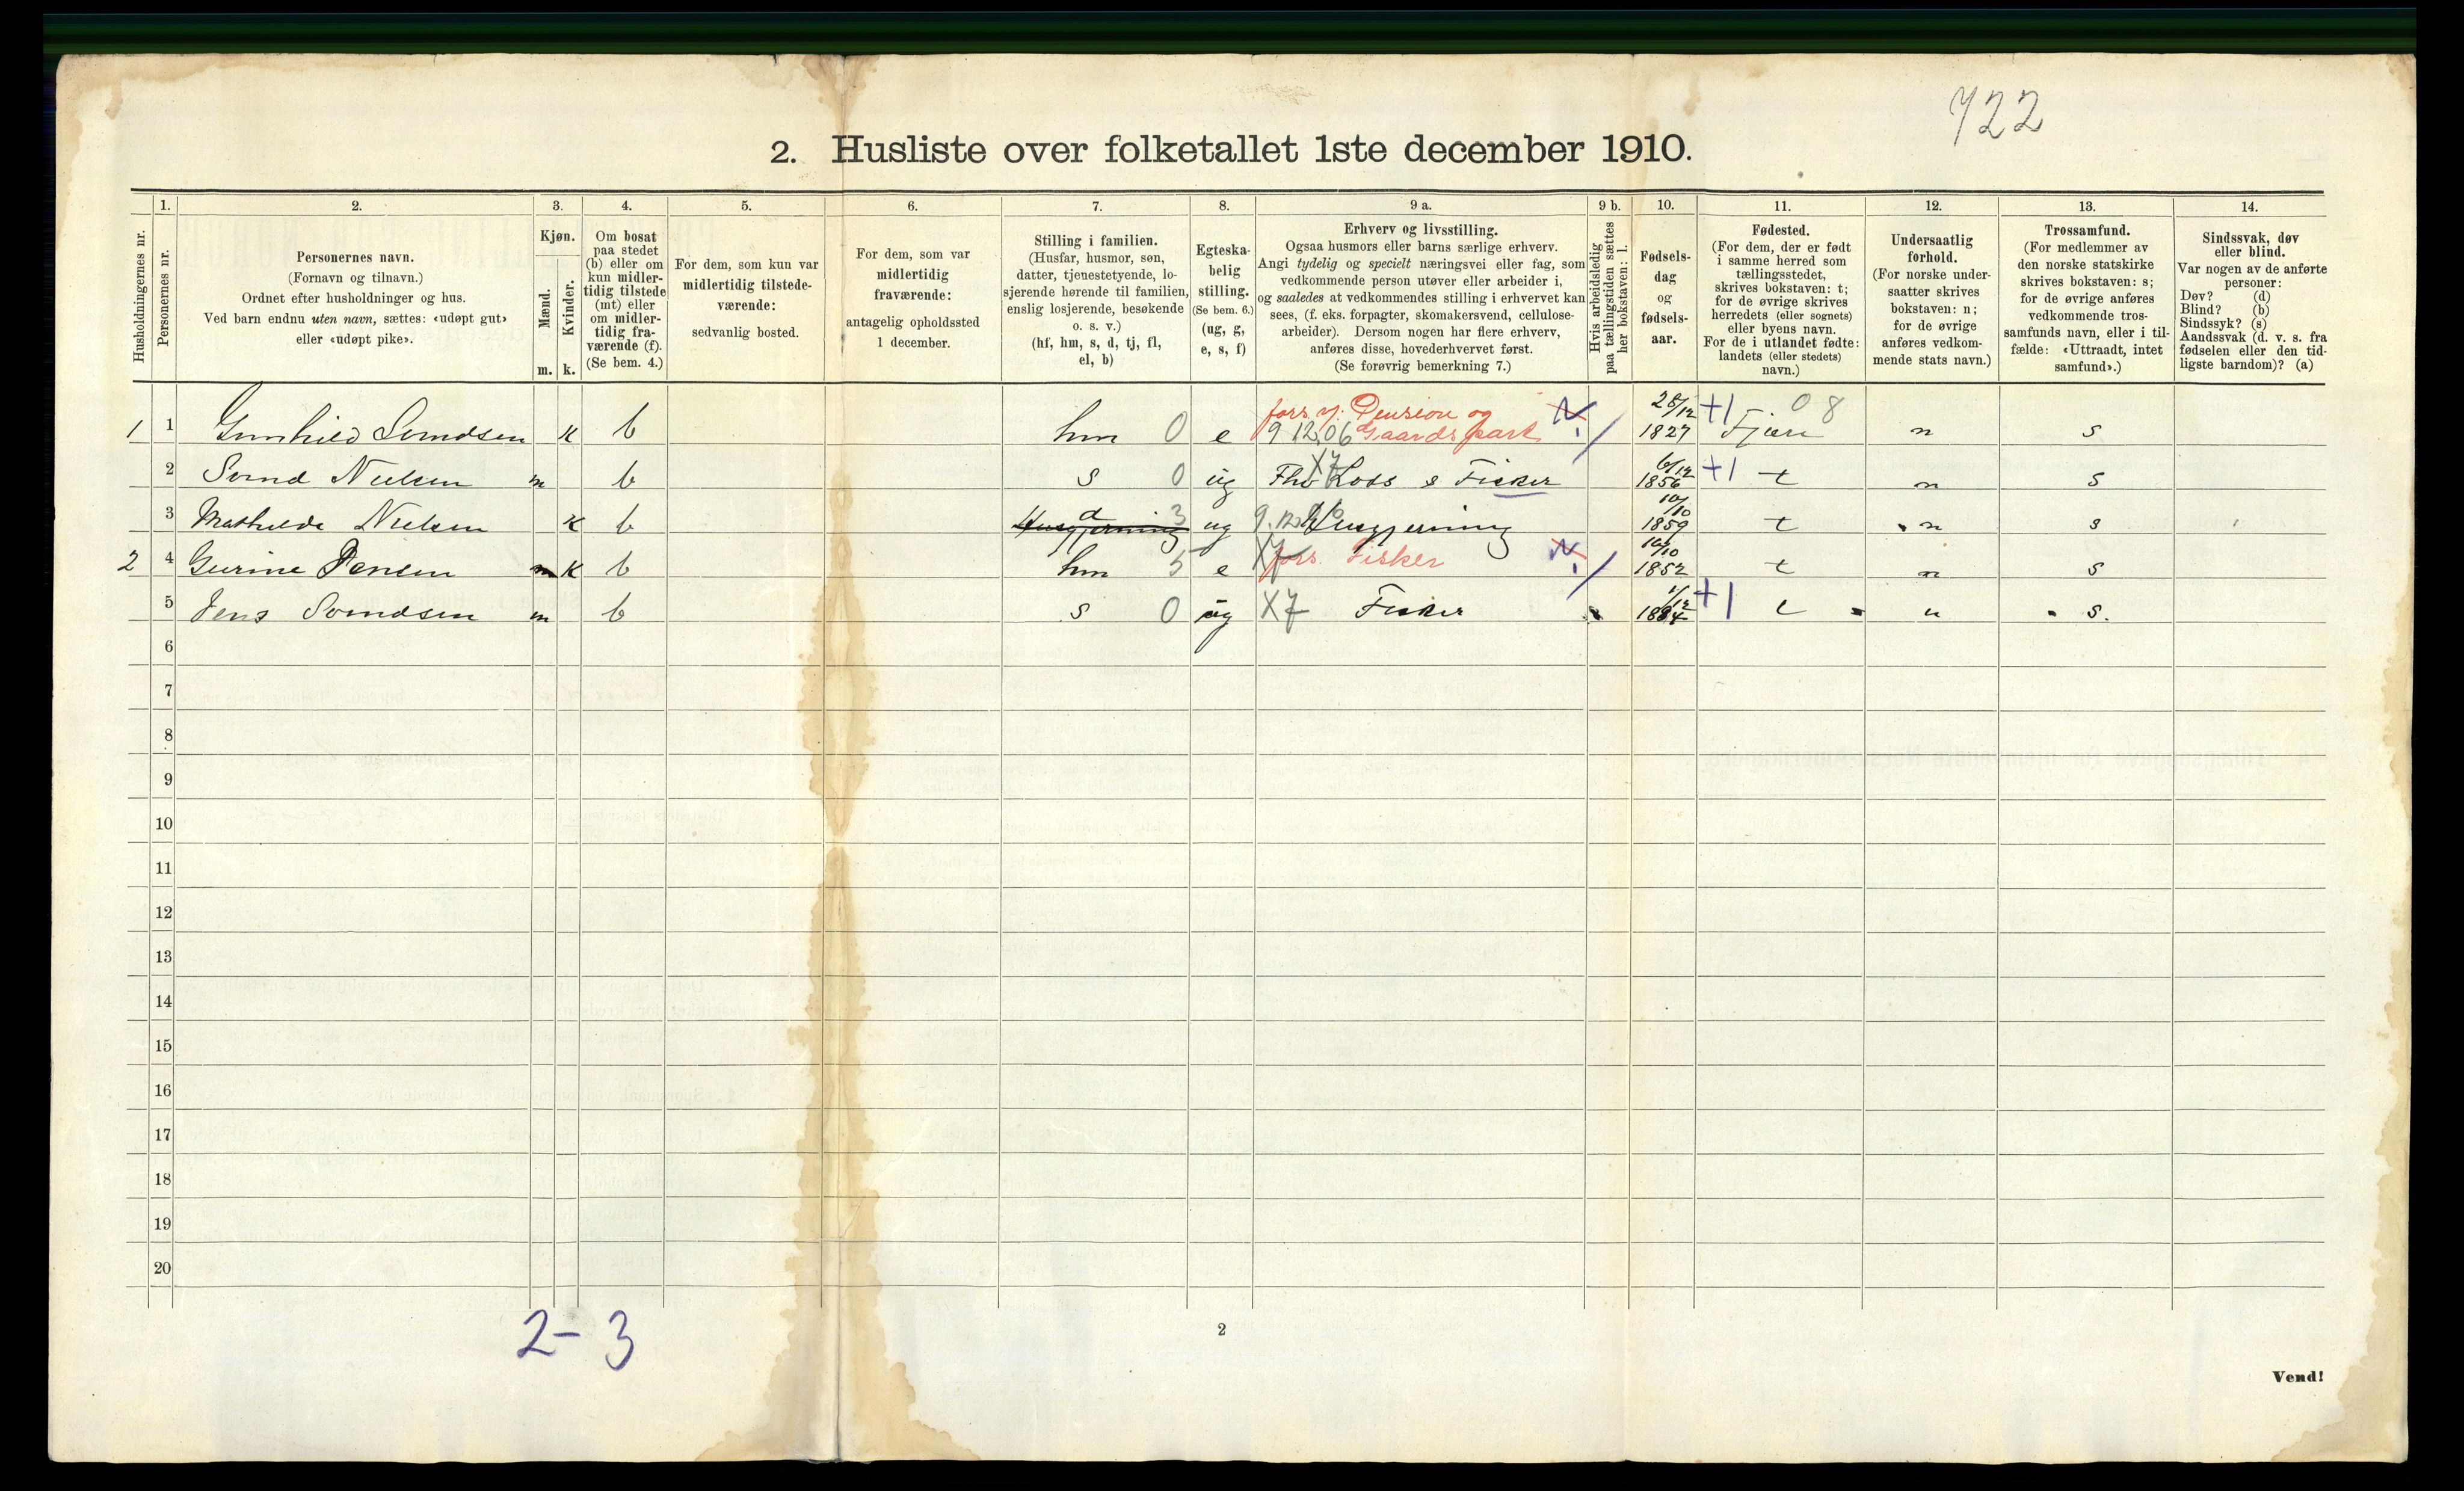 722
2. Husliste over folketallet 1ste december 1910.
Husholdningernes nr.
1.
Personernes nr.
2.
Personernes navn.
(Fornavn og tilnavn.)
Ordnet efter husholdninger og hus.
Ved barn endnu uten navn, sættes: «udøpt gut»
eller «udøpt pike».
3.
Kjøn.
Mænd.
Kvinder.
m. k.
4.
Om bosat
paa stedet
(b) eller om
kun midler-
tidig tilstede
(mt) eller
om midler-
tidig fra-
værende (f).
(Se bem. 4.)
5.
For dem, som kun var
midlertidig tilstede-
værende:
sedvanlig bosted.
6.
For dem, som var
midlertidig
fraværende:
antagelig opholdssted
1 december.
7.
Stilling i familien.
(Husfar, husmor, søn,
datter, tjenestetyende, lo-
sjerende hørende til familien,
enslig losjerende, besøkende
o. s. v.)
(hf, hm, s, d, tj, fl,
el, b)
8.
Egteska-
belig
stilling.
(Se bem. 6.)
(ug, g,
e, s, f)
9 a.
Erhverv og livsstilling.
Ogsaa husmors eller barns særlige erhverv.
Angi tydelig og specielt næringsvei eller fag, som
vedkommende person utøver eller arbeider i,
og saaledes at vedkommendes stilling i erhvervet kan
sees, (f. eks. forpagter, skomakersvend, cellulose-
arbeider). Dersom nogen har flere erhverv,
anføres disse, hovederhvervet først.
(Se forøvrig bemerkning 7.)
9 b.
Hvis arbeidsledig
paa tællingstiden sættes
her bokstaven: l.
10.
Fødsels-
dag
og
fødsels-
aar.
11.
Fødested.
(For dem, der er født
i samme herred som
tællingsstedet,
skrives bokstaven: t;
for de øvrige skrives
herredets (eller sognets)
eller byens navn.
For de i utlandet fødte:
landets (eller stedets)
navn.)
12.
Undersaatlig
forhold.
(For norske under-
saatter skrives
bokstaven: n;
for de øvrige
anføres vedkom-
mende stats navn.)
13.
Trossamfund.
(For medlemmer av
den norske statskirke
skrives bokstaven: s;
for de øvrige anføres
vedkommende tros-
samfunds navn, eller i til-
fælde: «Uttraadt, intet
samfund».)
14.
Sindssvak, døv
eller blind.
Var nogen av de anførte
personer:
Døv? (d)
Blind? (b)
Sindssyk? (s)
Aandssvak (d. v. s. fra
fødselen eller den tid-
ligste barndom)? (a)
1 1 Gunhild Svendsen k b hm 0 e fors. v. Pension og Gaardspart 9 12.06 N 28/12 1827 +1 Fjære 08 n s
2 Svend Nielsen m b s 0 ug X7 Fisker 6/12 1856 +1 t n s
3 Mathilde Nielsen k b Husgjerning d 3 ug 9.12 Husgjerning 10/10 1859 t n s
2 4 Gurine Jensen m k b hm 5 e X7 fors. Fisker N 10/10 1852 t n s
5 Jens Svendsen m b s 0 ug X7 Fisker 1/12 1884 +1 t n s.
6
7
8
9
10
11
12
13
14
15
16
17
18
19
20
2-3
2
Vend!